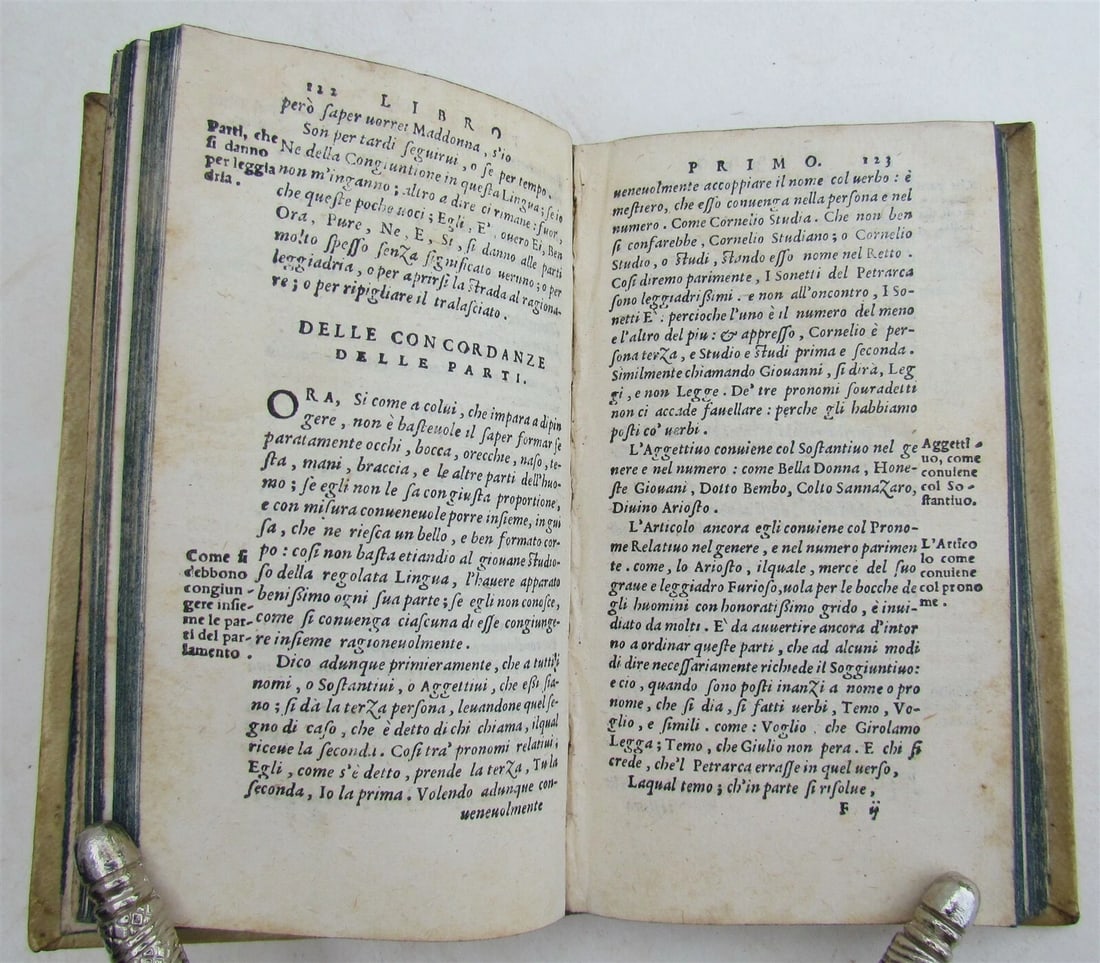 122 LIBRO
però ſaper uorrei Maddonna, s'io
Son per tardi ſeguirui, o ſe per tempo.
Parti, che
ſi danno
per leggia
dria.
Ne della Congiuntione in queſta Lingua; ſe io
non m'inganno; altro a dire ci rimane: fuor,
che queſte poche uoci; Egli, E', ouero Ei, Ben
Ora, Pure, Ne, E, Sì, ſi danno alle parti
molto ſpeſſo ſenZa ſignificato ueruno; o per
leggiadria, o per aprirſi la ſtrada al ragiona-
re; o per ripigliare il tralaſciato.
DELLE CONCORDANZE
DELLE PARTI.
ORA, Si come a colui, che impara a dipin
gere, non è baſteuole il ſaper formar ſe
paratamente occhi, bocca, orecchie, naſo, te-
ſta, mani, braccia, e le altre parti dell'huo-
mo; ſe egli non le ſa con giuſta proportione,
e con miſura conueneuole porre inſieme, in gui
ſa, che ne rieſca un bello, e ben formato cor-
po: coſi non baſta etiandio al giouane ſtudio-
ſo della regolata Lingua, l'hauere apparato
beniſſimo ogni ſua parte; ſe egli non conoſce,
come ſi conuenga ciaſcuna di eſſe congiunge-
re inſieme ragioneuolmente.
Come ſi
debbono
congiun-
gere inſie-
me le par-
ti del par-
lamento.
Dico adunque primieramente, che a tutti i
nomi, o Soſtantiui, o Aggettiui, che eſſi ſia-
no; ſi dà la terZa perſona, leuandone quel ſe-
gno di caſo, che è detto di chi chiama, ilqual
riceue la seconda. Coſi tra' pronomi relatiui;
Egli, come s'è detto, prende la terZa, Tu la
ſeconda, Io la prima. Volendo adunque con-
ueneuolmente
PRIMO. 123
ueneuolmente accoppiare il nome col uerbo: è
meſtiero, che eſſo conuenga nella perſona e nel
numero. Come Cornelio Studia. Che non ben
ſi confarebbe, Cornelio Studiano; o Cornelio
Studio, o Studi, ſtando eſſo nome nel Retto.
Coſi diremo parimente, I Sonetti del Petrarca
ſono leggiadriſſimi. e non all'oncontro, I So-
netti E': percioche l'uno è il numero del meno
e l'altro del piu: & appreſſo, Cornelio è per-
ſona terZa, e Studio e ſtudi prima e ſeconda.
Similmente chiamando Giouanni, ſi dirà, Leg
gi, e non Legge. De' tre pronomi ſouradetti
non ci accade fauellare: perche gli habbiamo
poſti co' uerbi.
L'Aggettiuo conuiene col Soſtantiuo nel ge
nere e nel numero: come Bella Donna, Hone-
ſte Giouani, Dotto Bembo, Colto SannaZaro,
Diuino Arioſto.
Aggetti-
uo, come
conuiene
col So-
ſtantiuo.
L'Articolo ancora egli conuiene col Prono-
me Relatiuo nel genere, e nel numero parimen
te. come, lo Arioſto, ilquale, mercè del ſuo
graue e leggiadro Furioſo, uola per le bocche de
gli huomini con honoratiſſimo grido, è inui-
diato da molti. E' da auuertire ancora d'intor
no a ordinar queſte parti, che ad alcuni modi
di dire neceſſariamente richiede il Soggiuntiuo:
e cio, quando ſono poſti inanZi a nome o pro
nome, che ſi dia, ſi fatti uerbi, Temo, Vo-
glio, e ſimili. come: Voglio, che Girolamo
Legga; Temo, che Giulio non pera. E chi ſi
crede, che'l Petrarca erraſſe in quel uerſo,
L'Artico
lo come
conuiene
col prono
me.
Laqual temo; ch'in parte ſi riſolue,
F ij